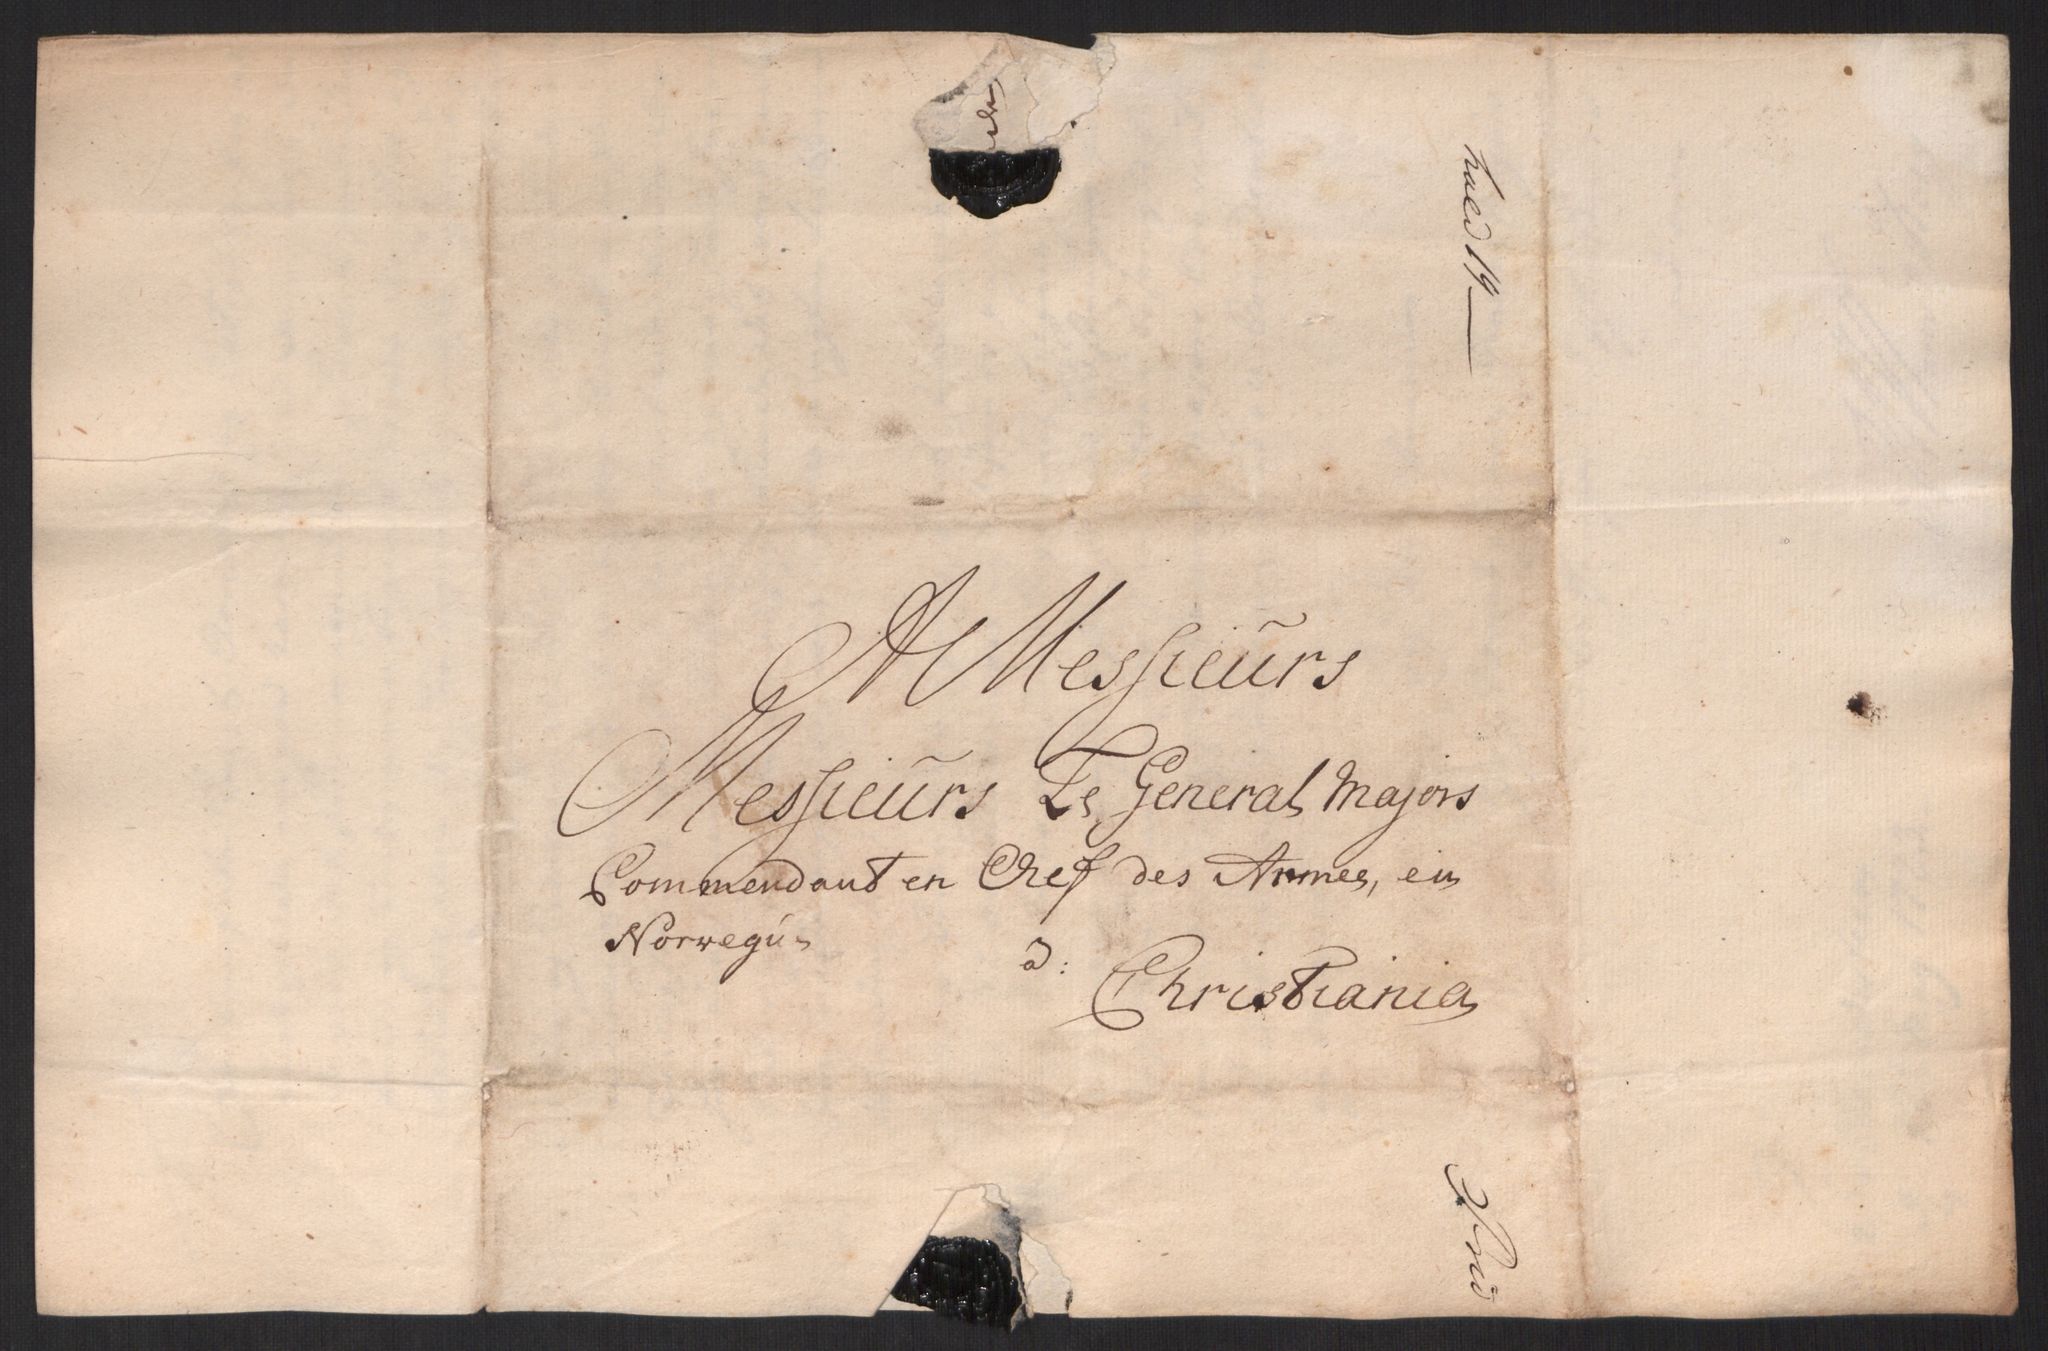 A Messieurs
Messieurs Le General Majors
Commendant en Chef des Armee, en
Norwegis
a: Christiania